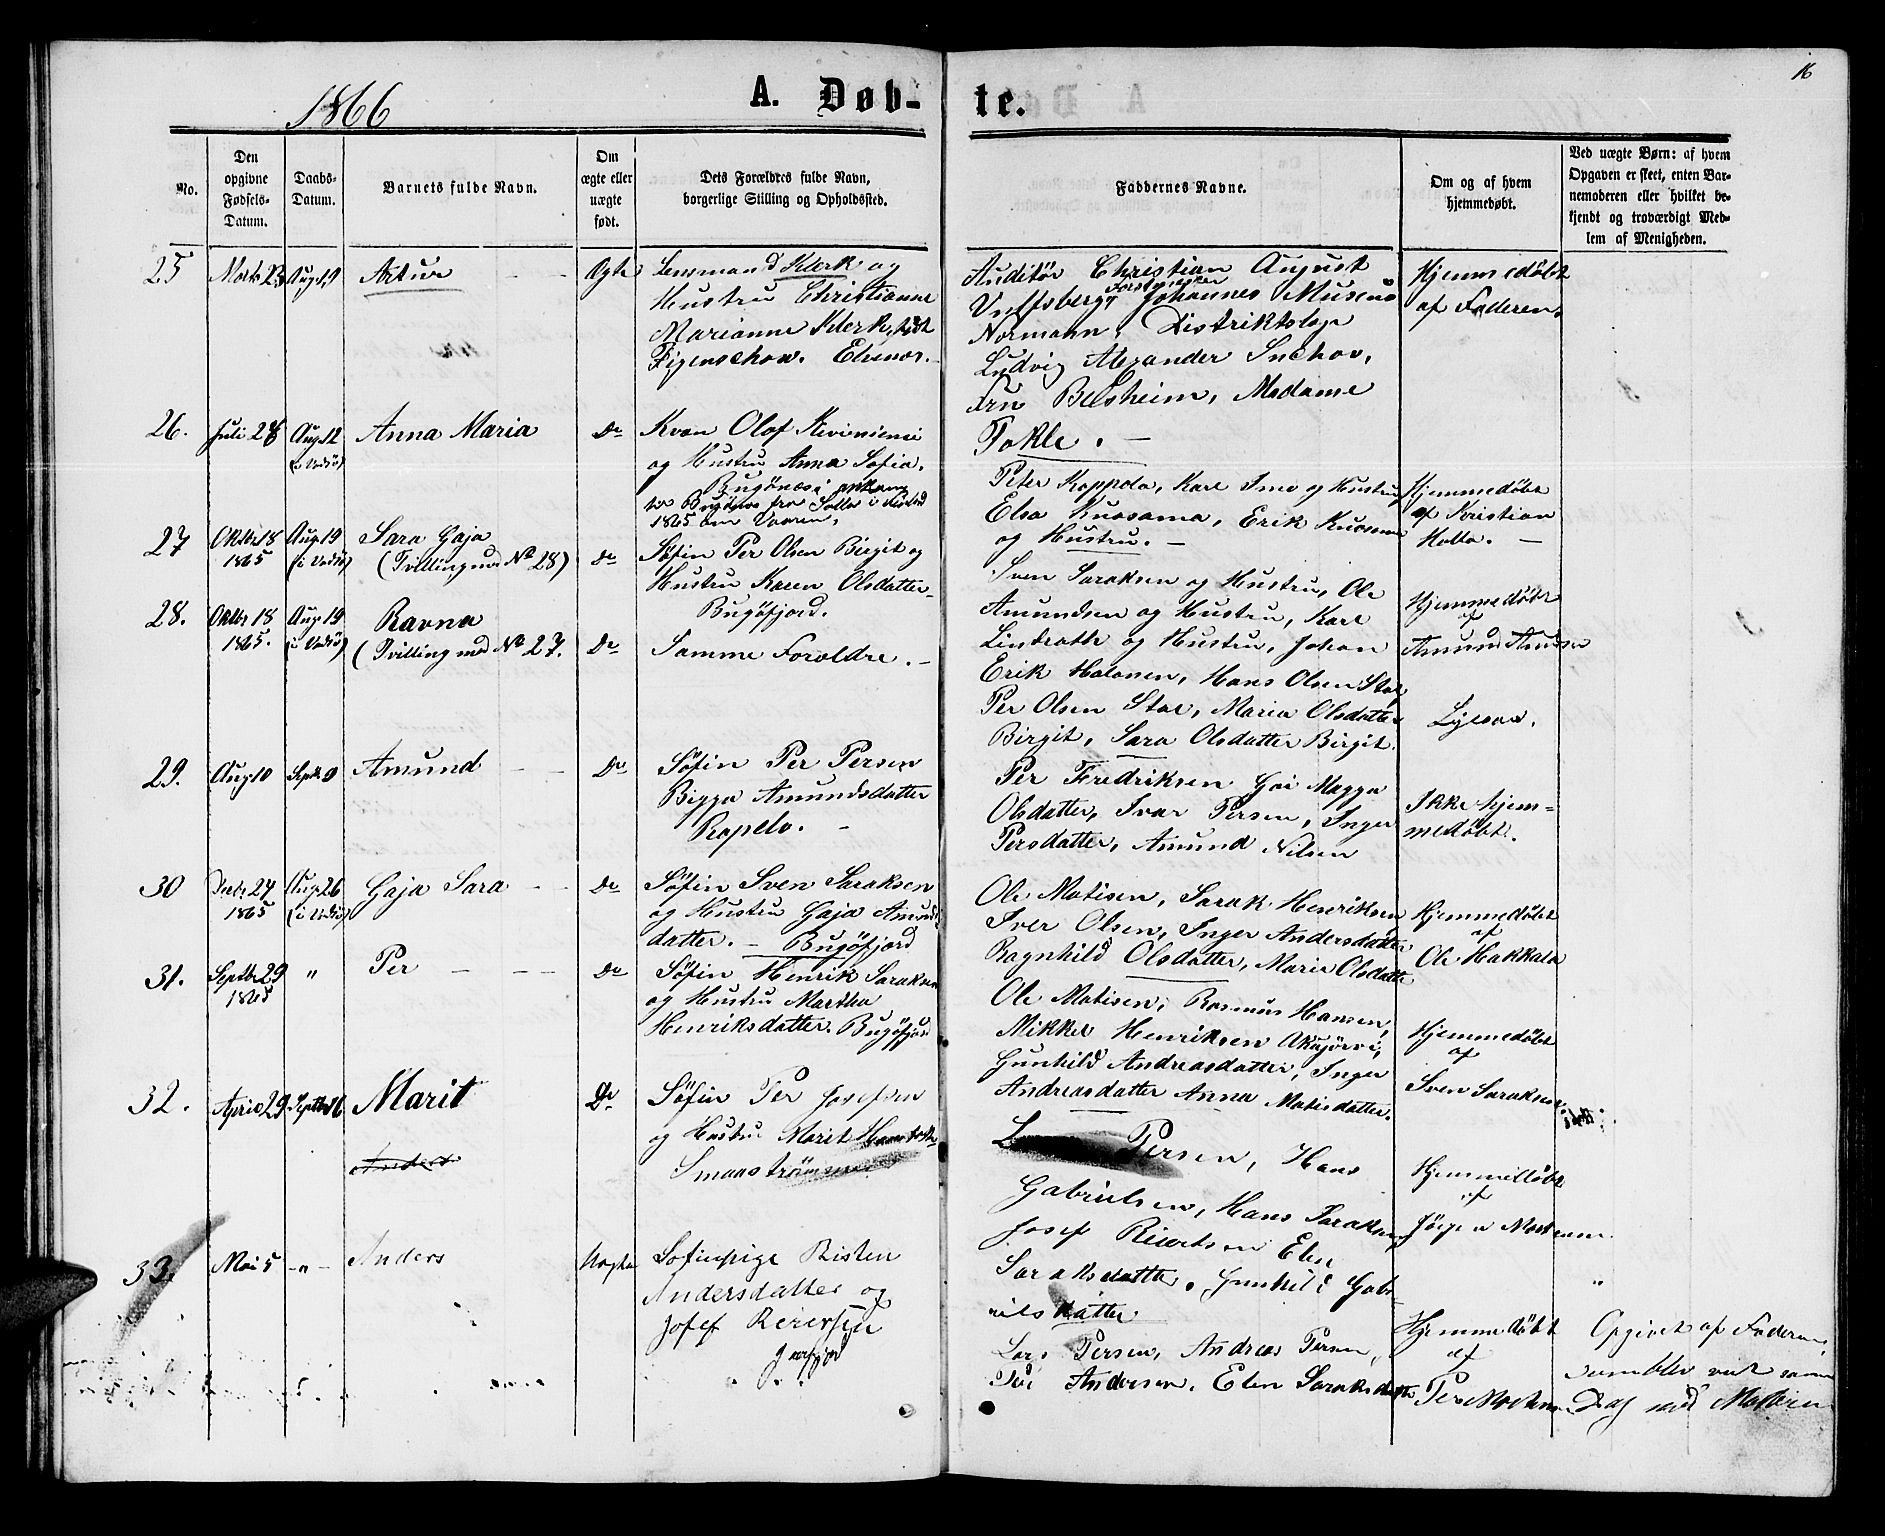 16
1866
A. Døb-
te.
No.
Den
opgivne
Fødsels-
Datum.
Daabs-
Datum.
Barnets fulde Navn.
Om
ægte eller
uægte
født.
Dets Forældres fulde Navn,
borgerlige Stilling og Opholdssted.
Faddernes Navne.
Om og af hvem
hjemmedøbt.
Ved uægte Børn: af hvem
Opgaven er skeet, enten Bar-
nemoderen eller hvilket be-
kjendt og troværdigt Med-
lem af Menigheden.
25
Marts 23
Aug. 19
Artur
Ægte
Lensmand Klerk og
Hustru Christianne
Marianne Klerk, født
Figenschow. Elvenæs.
Auditør Christian August
Vulfsberg, Johannes Musæus
Normann, Distriktslæge
Ludvig Alexander
Fru Belsheim, Madame
Fokle.
Hjemmedøbt
af Faderen.
26.
Juli 28
Aug. 12
(i Vadsø)
Anna Maria
Do
Kvæn Olof Kiviniemi
og Hustru Anna Sofia,
Bugønæs; ankom
til Bugønæs fra Salla i
1865 om Vaaren.
Peter Koppola, Karl Imo og Hustru
Elsa Kuosama, Erik Kuosama
og Hustru.
Hjemmedøbt
af Kristian
Holto.
27
Oktbr 18
1865
Aug. 19
(i Vadsø)
Sara Gaja
(Tvilling med No 28)
Do
Søfin Per Olsen Birgit og
Hustru Karen Olsdatter
Bugøfjord.
Sven Saraksen og Hustru, Ole
Amundsen og Hustru, Karl
Lindroth og Hustru, Johan
Erik Halonen, Hans Olsen Stor,
Per Olsen Stor, Maria Olsdatter
Birgit, Sara Olsdatter Birgit.
Hjemmedøbt
af
Amund Amundsen
28.
Oktbr 18
1865.
Aug. 19
(i Vadsø)
Ravna
(Tvilling med No 27.
Do
Samme Forældre.
Ligesaa.
29.
Aug. 10
Septb. 9
Amund
Do
Søfin Per Persen
Bigga Amundsdatter
Ropelv.
Per Fredriksen Gai Magga
Olsdatter, Ivar Persen, Inger
Persdatter, Amund Nilsen
Ikke hjem-
medøbt.
30
Decbr 27
1865
Aug. 26
(i Vadsø)
Gaja Sara
Do
Søfin Sven Saraksen
og Hustru Gaja Amunds
datter. Bugøfjord
Ole Matisen, Sarak Henriksen
Iver Olsen, Inger Andersdatter
Ragnhild Olsdatter, Marie Olsdatter
Hjemmedøbt
af
Ole Hakkala
31.
Septbr 29
1865
"
Per
Do
Søfin Henrik Saraksen
og Hustru Martha
Henriksdatter. Bugøfjord
Ole Matisen, Rasmus Hansen,
Mikkel Henriksen Akujærvi,
Gunhild Andreasdatter, Inger
Andreasdatter Anna Matisdatter.
Hjemmedøbt
af
Sven Saraksen
32.
April 29
Septbr 16
Marit
Anders
Do
Søfin Per Josefsen
og Hustru Marit
Smaastrømmen
Persen, Hans
Gabrielsen, Hans Saraksen
Josef Reiertsen Elen
Saraksdatter, Gunhild Gabr-
ielsdatter
Hjemmedøbt
af
"
33.
Mai 5
"
Anders
Uægte
Søfinpige Risten
Andersdatter og
Josef Reiersen
Jarfjord
Lars Persen, Andreas Persen,
Andersen, Elen Saraksdatter
Hjemmedøbt
af
Per Mortensen
Opgivet af Faderen,
som blev viet samme
Dag med Moderen